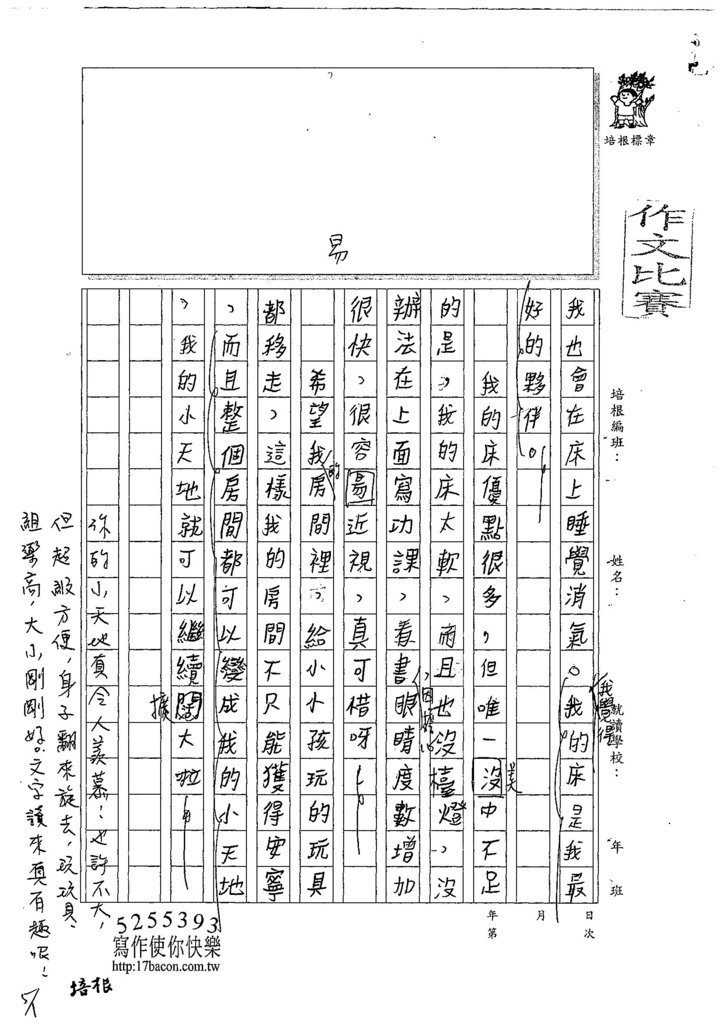 培根標章
作文比賽
培根編班：
姓名：
就讀學校：
年 班
易
我也會在床上睡覺消氣。我的床是我最
我覺得
好的夥伴。
我的床優點很多，但唯一沒中不足
美
的是，我的床太軟，而且也沒檯燈，沒
辦法在上面寫功課，看書眼睛度數增加
很快，很容昜近視，真可惜呀！
希望我房間裡 給小小孩玩的玩具
的
都移走，這樣我的房間不只能獲得安寧
，而且整個房間都可以變成我的小天地
，我的小天地就可以繼續闊大啦！
擴
你的小天地真令人羨慕！也許不大，
但起碼方便，身子翻來旋去，玩玩具、
組樂高，大小剛剛好。文字讀來真有趣呢！
培根
日 月 年
次 第
5255393
寫作使你快樂
http:17bacon.com.tw